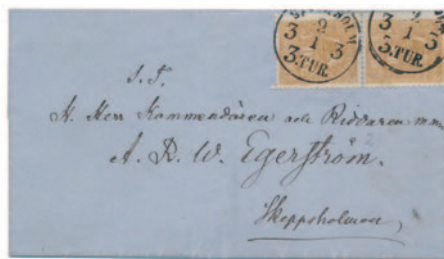 STOCKHOLM
9
3 1 3
3.TUR.
9
3 1 3
3.TUR.
S.T.
H. Herr Kommendören och Riddaren m.m.
A. R. W. Egerström.
Skeppsholmen
2